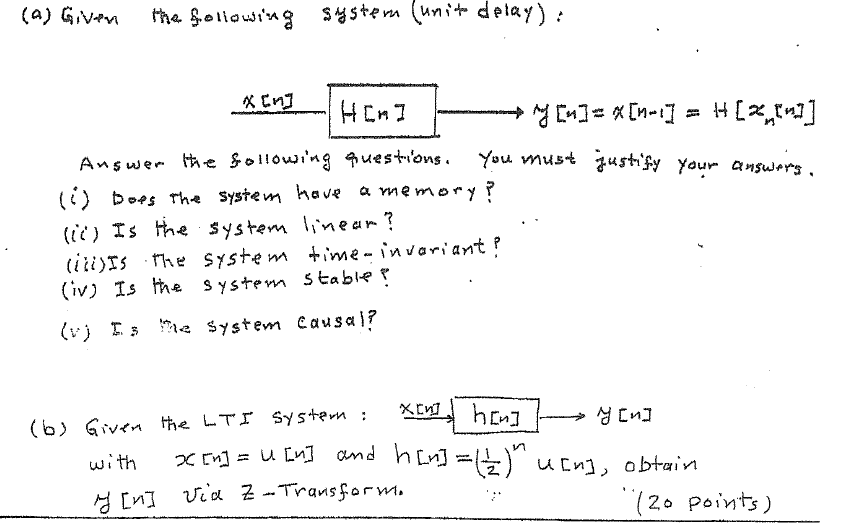 (a) Given the following system (unit delay) :
x[n] H[n] y[n] = x[n-1] = H[x_n[n]]
Answer the following questions. You must justify your answers.
(i) Does the system have a memory?
(ii) Is the system linear?
(iii) Is the system time-invariant?
(iv) Is the system stable?
(v) Is the system causal?
(b) Given the LTI system : x[n] h[n] y[n]
with x[n] = u[n] and h[n] = (1/2)^n u[n], obtain
y[n] via Z-Transform. (20 points)